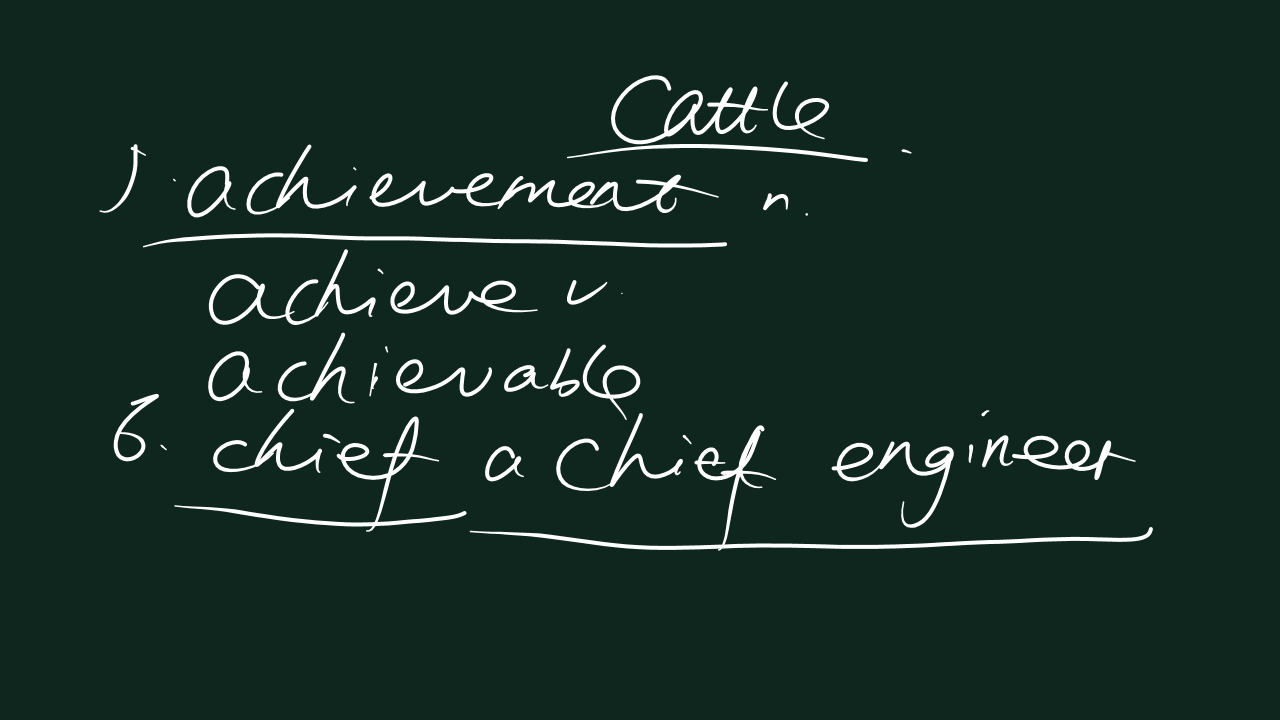 Cattle
1 achievement n.
achieve v.
achievable
6. chief a chief engineer